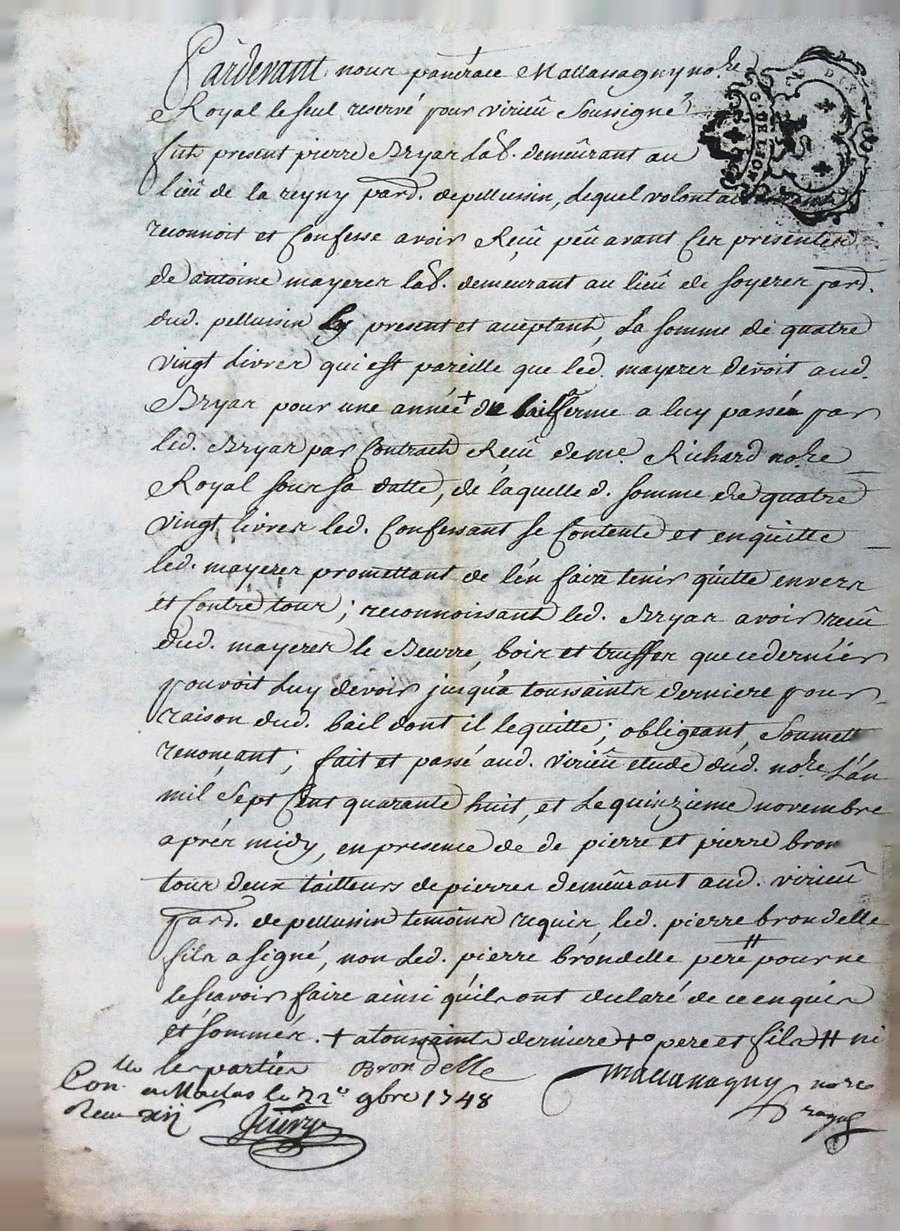 Pardevant nous pancrace Mallassagny no.re
Royal le seul reservé pour virieû Soussigné
fut present pierre Bryas lab. demeûrant au
lieû de la reyny par. de pellussin, Lequel volontairement
reconnoit et Confesse avoir Receû peû avant Ces presentes
de antoine mayeres lab. demeurant au lieû de soyeres par.
dud. pellussin present et aceptant, La somme de quatre
vingt Livres qui est pareille que led. mayeres devoit aud.
Bryas pour une année + de bail ferme a luy passée par
led. Bryas par Contract Receû de me. Richard no.re
Royal sous sa datte, de laquelle d. somme de quatre
vingt livres led. Confessant se Contente et en quitte
led. mayeres promettant de l'en faire tenir quitte envers
et Contre tous; reconnoissant led. Bryas avoir receû
dud. mayeres le Beurre, bois et truffes que ce dernier
pouvoit Luy devoir jusqu'a toussaints derniere pour
raison dud. bail dont il le quitte; obligeant, Soumett
renonçant; fait et passé aud. virieû etude dud. no.re L'an
mil Sept Cent quarante huit, et Le quinzieme novembre
aprés midy, en presence de de pierre et pierre bron
tous deux tailleurs de pierres demeûrant aud. virieû
par. de pellussin temoins requis, led. pierre brondelle
fils a signé, non Led. pierre brondelle pere # pour ne
le scavoir faire ainsi qu'ils ont declaré de ce enquis
et sommés. + a toussaints derniere +o pere et fils # ni
les parties Brondelle Mallassagny no.re
Con.lle a Maclas le 22e 9bre 1748 royal
Reçu
G. DE LION